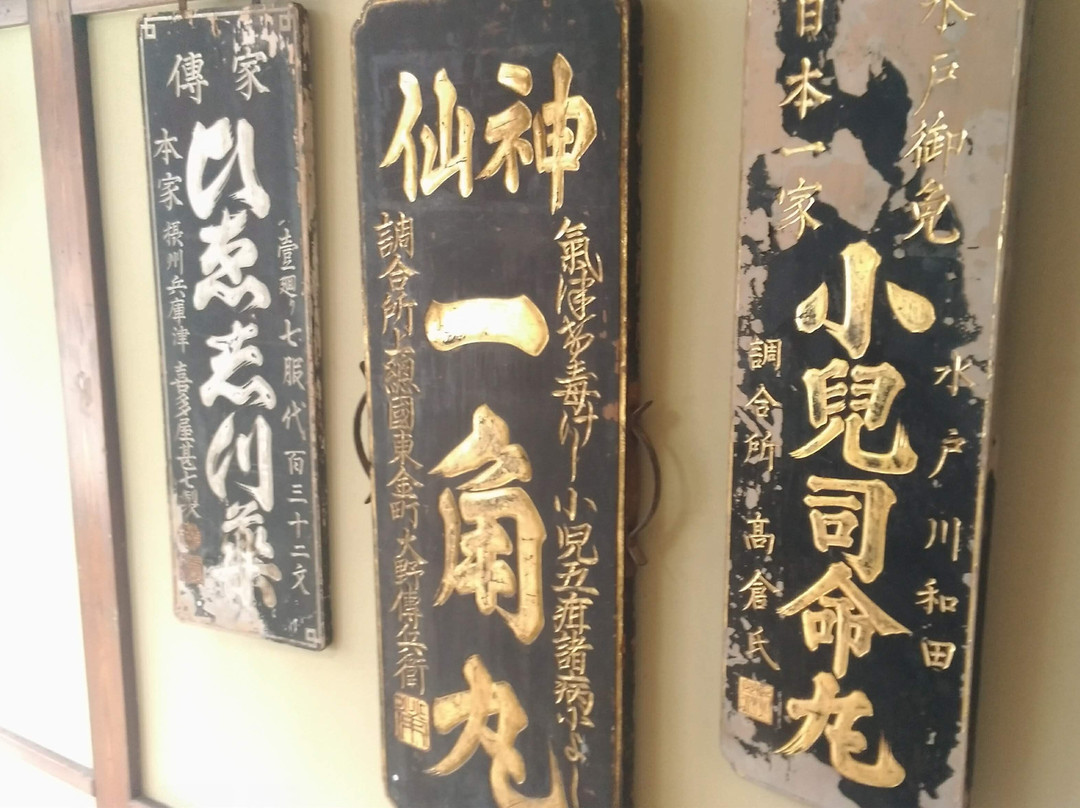 戸御免
水戸川和田
小兒司命丸
日本一家
調合所 高倉氏
神仙
氣津希毒けし 小児五疳諸病によし
一角丸
調合所上總國東金町大野傳兵衛
家傳
壹廻り七服代百三十二文
ひゑ志川薬
本家 摂州兵庫津 喜多屋甚七製